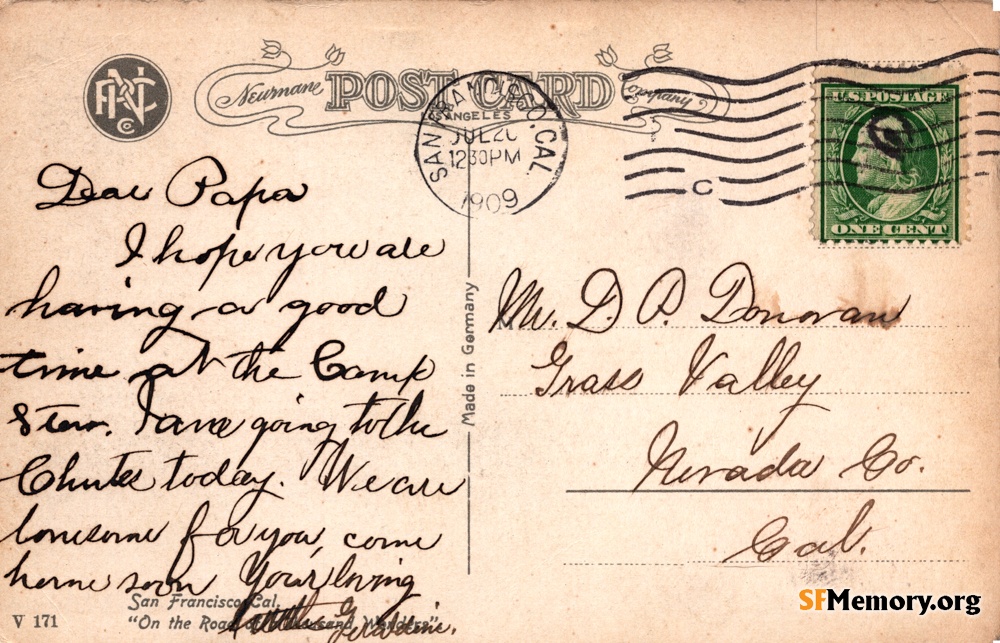 Neurnane POST CARD Company
SAN FRANCISCO, CAL.
LOS ANGELES
JUL 20
1230PM
1909
C
U.S. POSTAGE
ONE CENT
Dear Papa
I hope you are
having a good
time at the Camp
Stew. I am going to the
Chutes today. We are
lonesome for you, come
home soon Your loving
Geraldine.
Made in Germany
Mr. D. P. Donovan
Grass Valley
Nevada Co.
Cal.
San Francisco, Cal.
V 171
"On the Road of a Thousand Wonders"
SFMemory.org